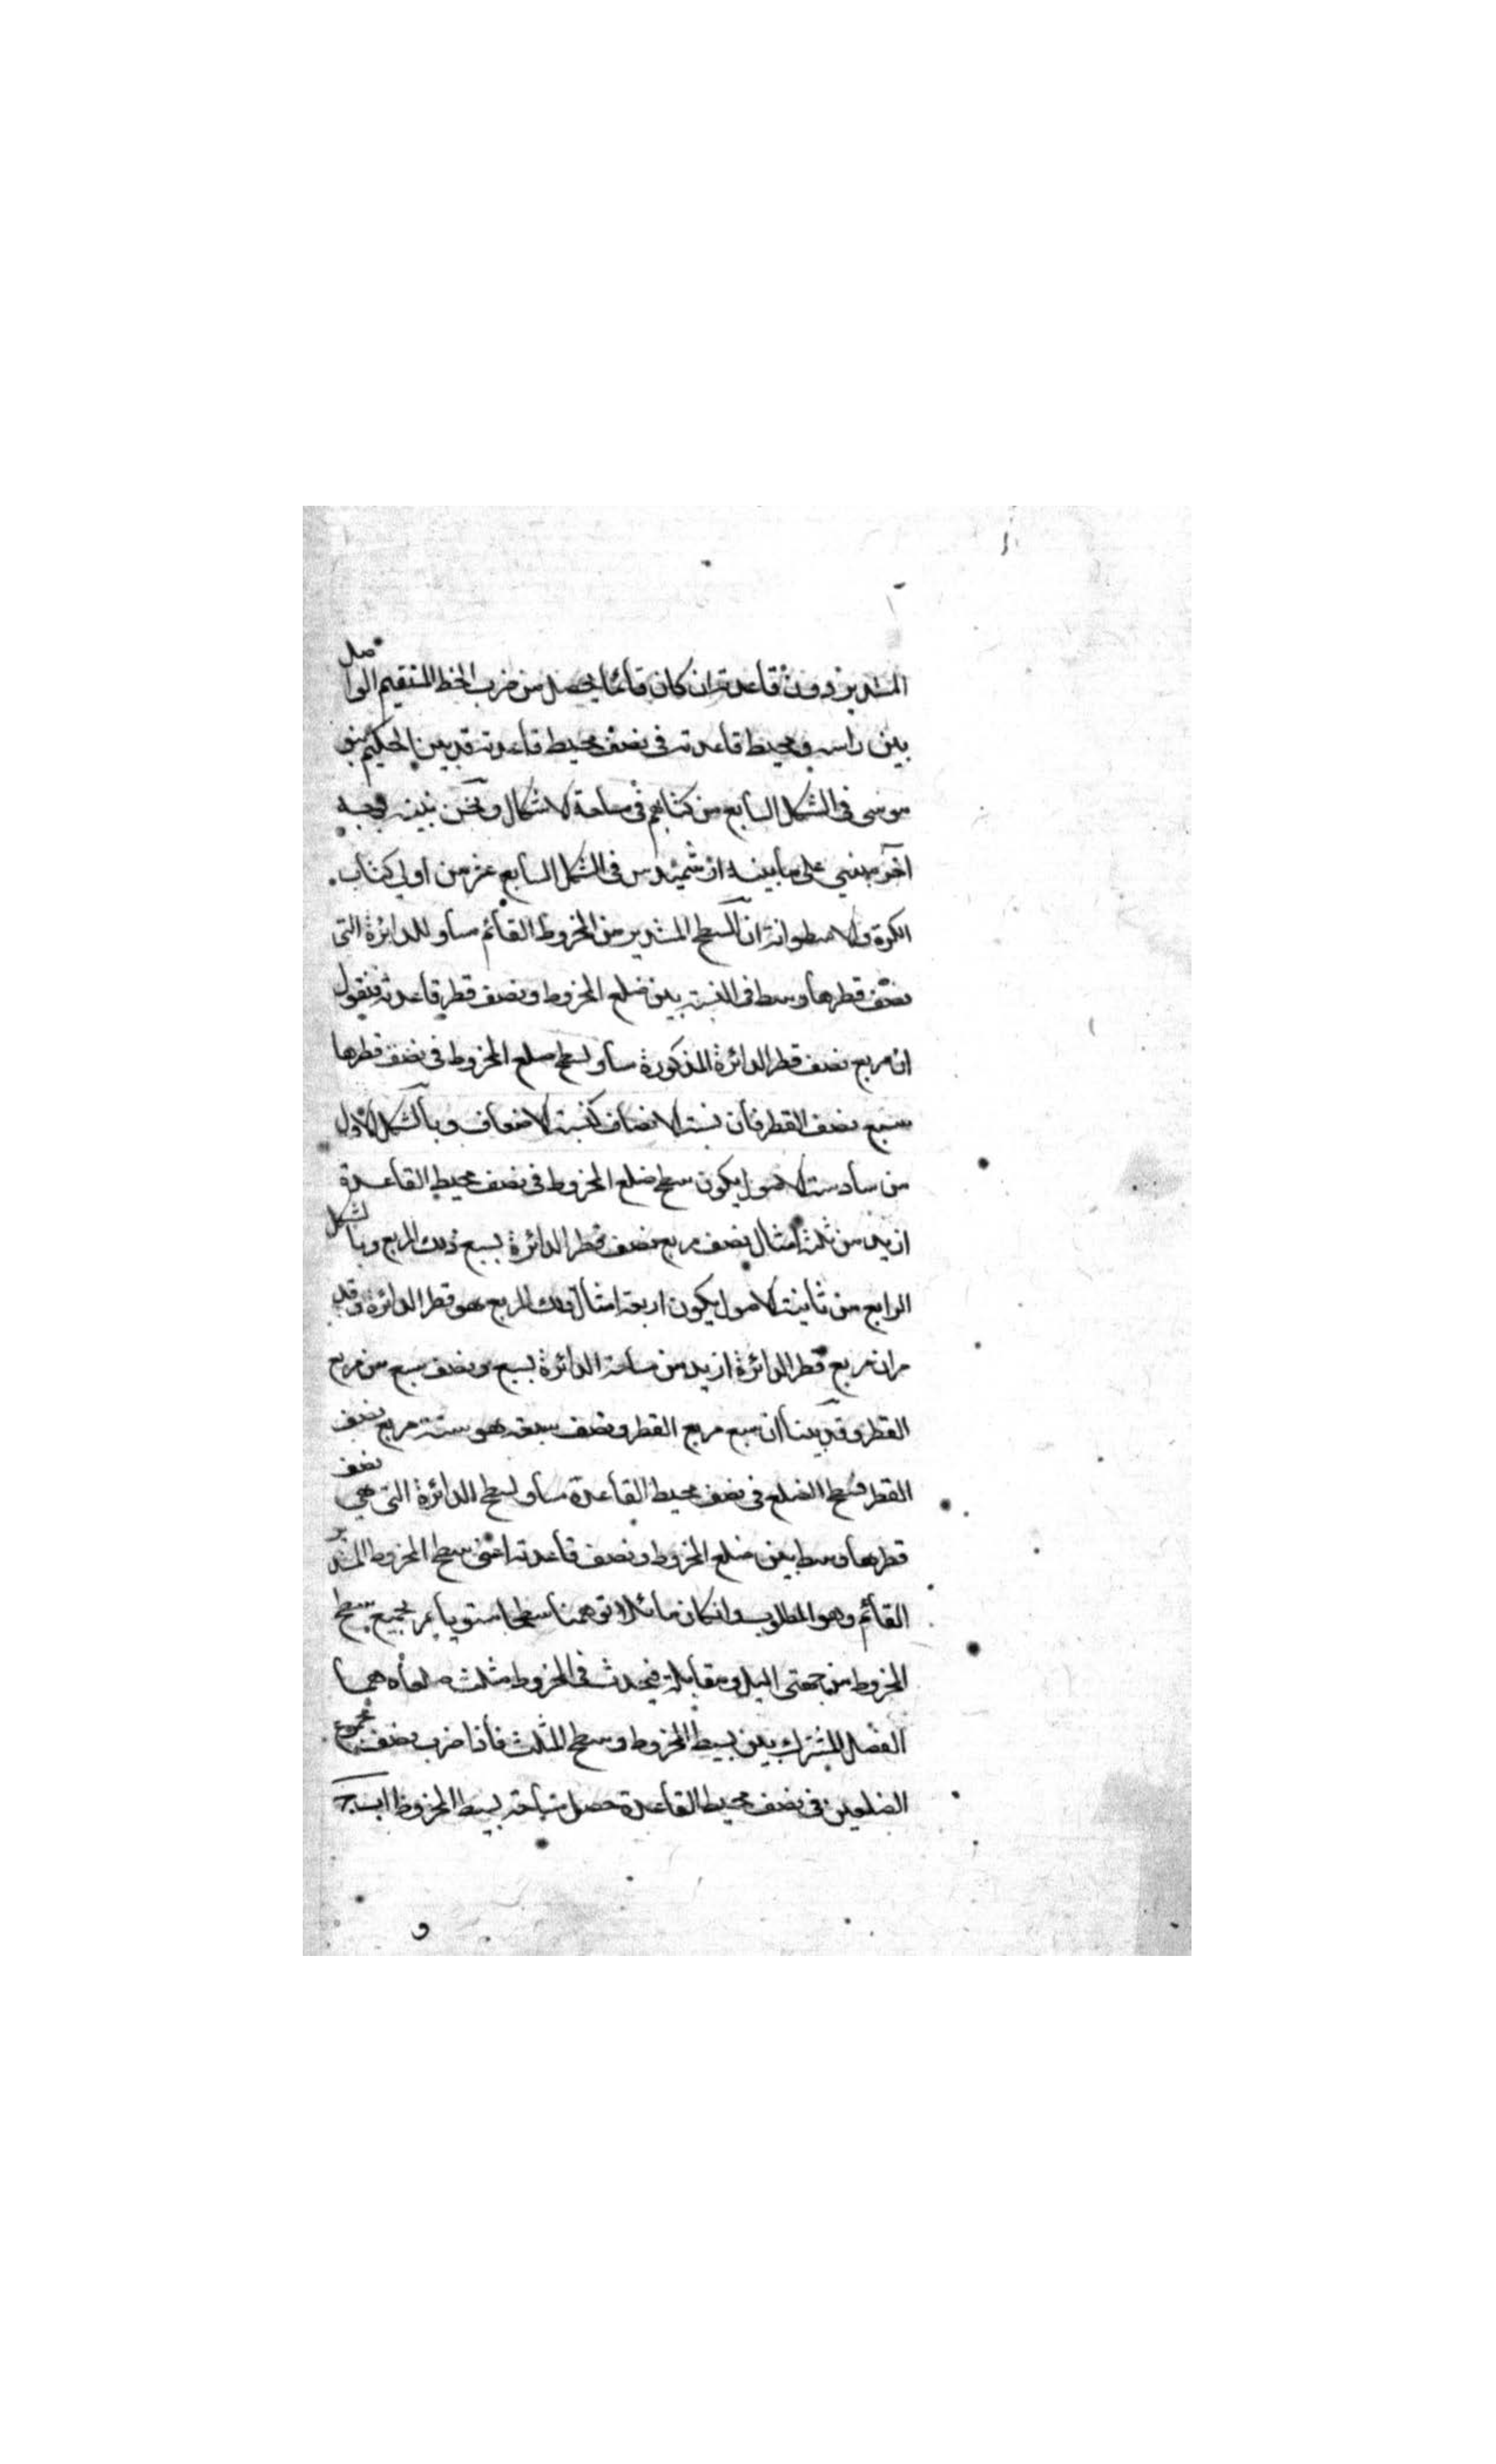 المستدير دون قاعدته ان كان قائما يحصل من ضرب الخط المستقيم الواصل
بين راسه ومحيط قاعدته فى نصف محيط قاعدته قد بين الحكيم بنو
موسى فى الشكل السابع من كتابهم فى مساحة الاشكال ونحن نبينه بوجه
آخر مبنيي على ما بينه ارشميدس فى الشكل السابع عشر من اولى كتاب
الكرة والاسطوانة ان السطح المستدير من المخروط القائم مساو للدائرة التى
نصف قطرها وسط فى النسبة بين ضلع المخروط ونصف قطر قاعدته فنقول
ان مربع نصف قطر الدائرة المذكورة مساو لسطح ضلع المخروط فى نصف قطرها
سبع نصف القطر فان نسبة الانصاف كنسبة الاضعاف وبالشكل الاول
من سادسة الاصول يكون سطح ضلع المخروط فى نصف محيط القاعدة
ازيد من ثلثة امثال نصف مربع نصف قطر الدائرة بسبع ذلك المربع وبالشكل
الرابع من ثانية الاصول يكون اربعة امثال ذلك المربع هو قطر الدائرة وقد
مر ان مربع قطر الدائرة ازيد من مساحة الدائرة بسبع ونصف سبع من مربع
القطر وقد بينا ان سبع مربع القطر ونصف سبعه هو ستة مربع نصف
القطر فسطح الضلع فى نصف محيط القاعدة مساو لسطح الدائرة التى هى نصف
قطرها وسط بين ضلع المخروط ونصف قاعدته اعنى سطح المخروط المستدير
القائم وهو المطلوب وان كان مائلا توهمنا سطحا مستويا يمر بجميع سطح
المخروط من جهتى الميل ومقابلة فيحدث فى المخروط مثلث ضلعاه هما
الفصل المشترك بين بسيط المخروط وسطح المثلث فاذا ضرب نصف مجموع
الضلعين فى نصف محيط القاعدة حصل مساحة بسيط المخروط ا ب ج
و